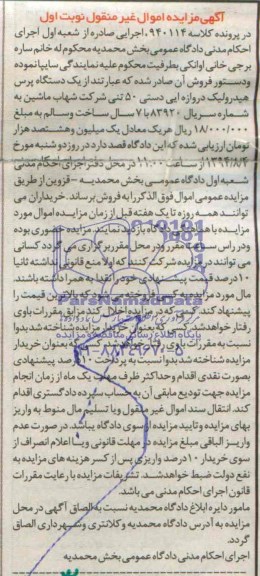 آگهی مزایده اموال غیر منقول نوبت اول
در پرونده کلاسه ۹۴۰۱۱۴ اجرایی صادره از شعبه اول اجرای
احکام مدنی دادگاه عمومی بخش محمدیه محکوم له خانم ساره
برجی خانی اوانکی بطرفیت محکوم علیه نمایندگی سایپا نموده
ودستور فروش آن صادر شده که عبارتند از یک دستگاه پرس
هیدرولیک دروازه ایی دستی ۵۰ تنی شرکت شهاب ماشین به
شماره سریال ۸۳۹۲۰ با ۷ سال ساخت وسالم به مبلغ
۱۸/۰۰۰/۰۰۰ ریال هریک معادل یک میلیون وهشتصد هزار
تومان ارزیابی شده که این دادگاه قصد دارد در روز دوشنبه مورخ
۱۳۹۴/۸/۴ از ساعت ۱۱:۰۰ در محل دفتر اجرای احکام مدنی
شعبه اول دادگاه عمومی بخش محمدیه - قزوین از طریق
مزایده عمومی اموال فوق الذکر را به فروش برساند. خریداران می
توانند همه روزه تا یک هفته قبل از زمان مزایده اموال مورد
مزایده با دادگاه بازدید نمایند. مزایده حضوری بوده
ودر راس ساعت مقرر ودر محل مقرر برگزاری می گردد کسانی
می توانند در مزایده شرکت کنند که اولا منع قانونی نداشته ثانیا
۱۰ درصد قیمت پیشنهادی خود را نقدا به همراه داشته باشند.
مال مورد مزایده به کسی فروخته می شود که بالاترین قیمت را
پیشنهاد کند. کسی که در مزایده اخلال کند مطابق مقررات باوی
رفتار خواهد شد. کسی که بعنوان خریدار مزایده شناخته شد بدوا
نسبت به مقررات باوی رفتار خواهد شد. کسی که بعنوان خریدار
مزایده شناخته شد بدوا نسبت به پرداخت ۱۰ درصد پیشنهادی
بصورت نقدی اقدام وحداکثر ظرف مهلت یک ماه از زمان انجام
مزایده جهت تودیع مابقی آن به حساب سپرده دادگستری اقدام
کند. انتقال سند اموال غیر منقول ویا تسلیم مال منوط به واریز
بهای مزایده وتایید مزایده از سوی دادگاه یباشد. در صورت عدم
واریز الباقی مبلغ مزایده در مهلت قانونی ویا اعلام انصراف از
سوی خریدار ۱۰ درصد واریزی پس از کسر هزینه های مزایده به
نفع دولت ضبط خواهد شد. تشریفات مزایده با رعایت مقررات
قانون اجرای احکام مدنی می باشد.
مامور دایره ابلاغ دادگاه محمدیه نسبت به الصاق آگهی در محل
مزایده به آدرس دادگاه محمدیه و کلانتری وشهرداری الصاق
گردد.
اجرای احکام مدنی دادگاه عمومی بخش محمدیه
ParsNamadData
۰۲۱-۸۸۳۴۹۶۷۰-۵